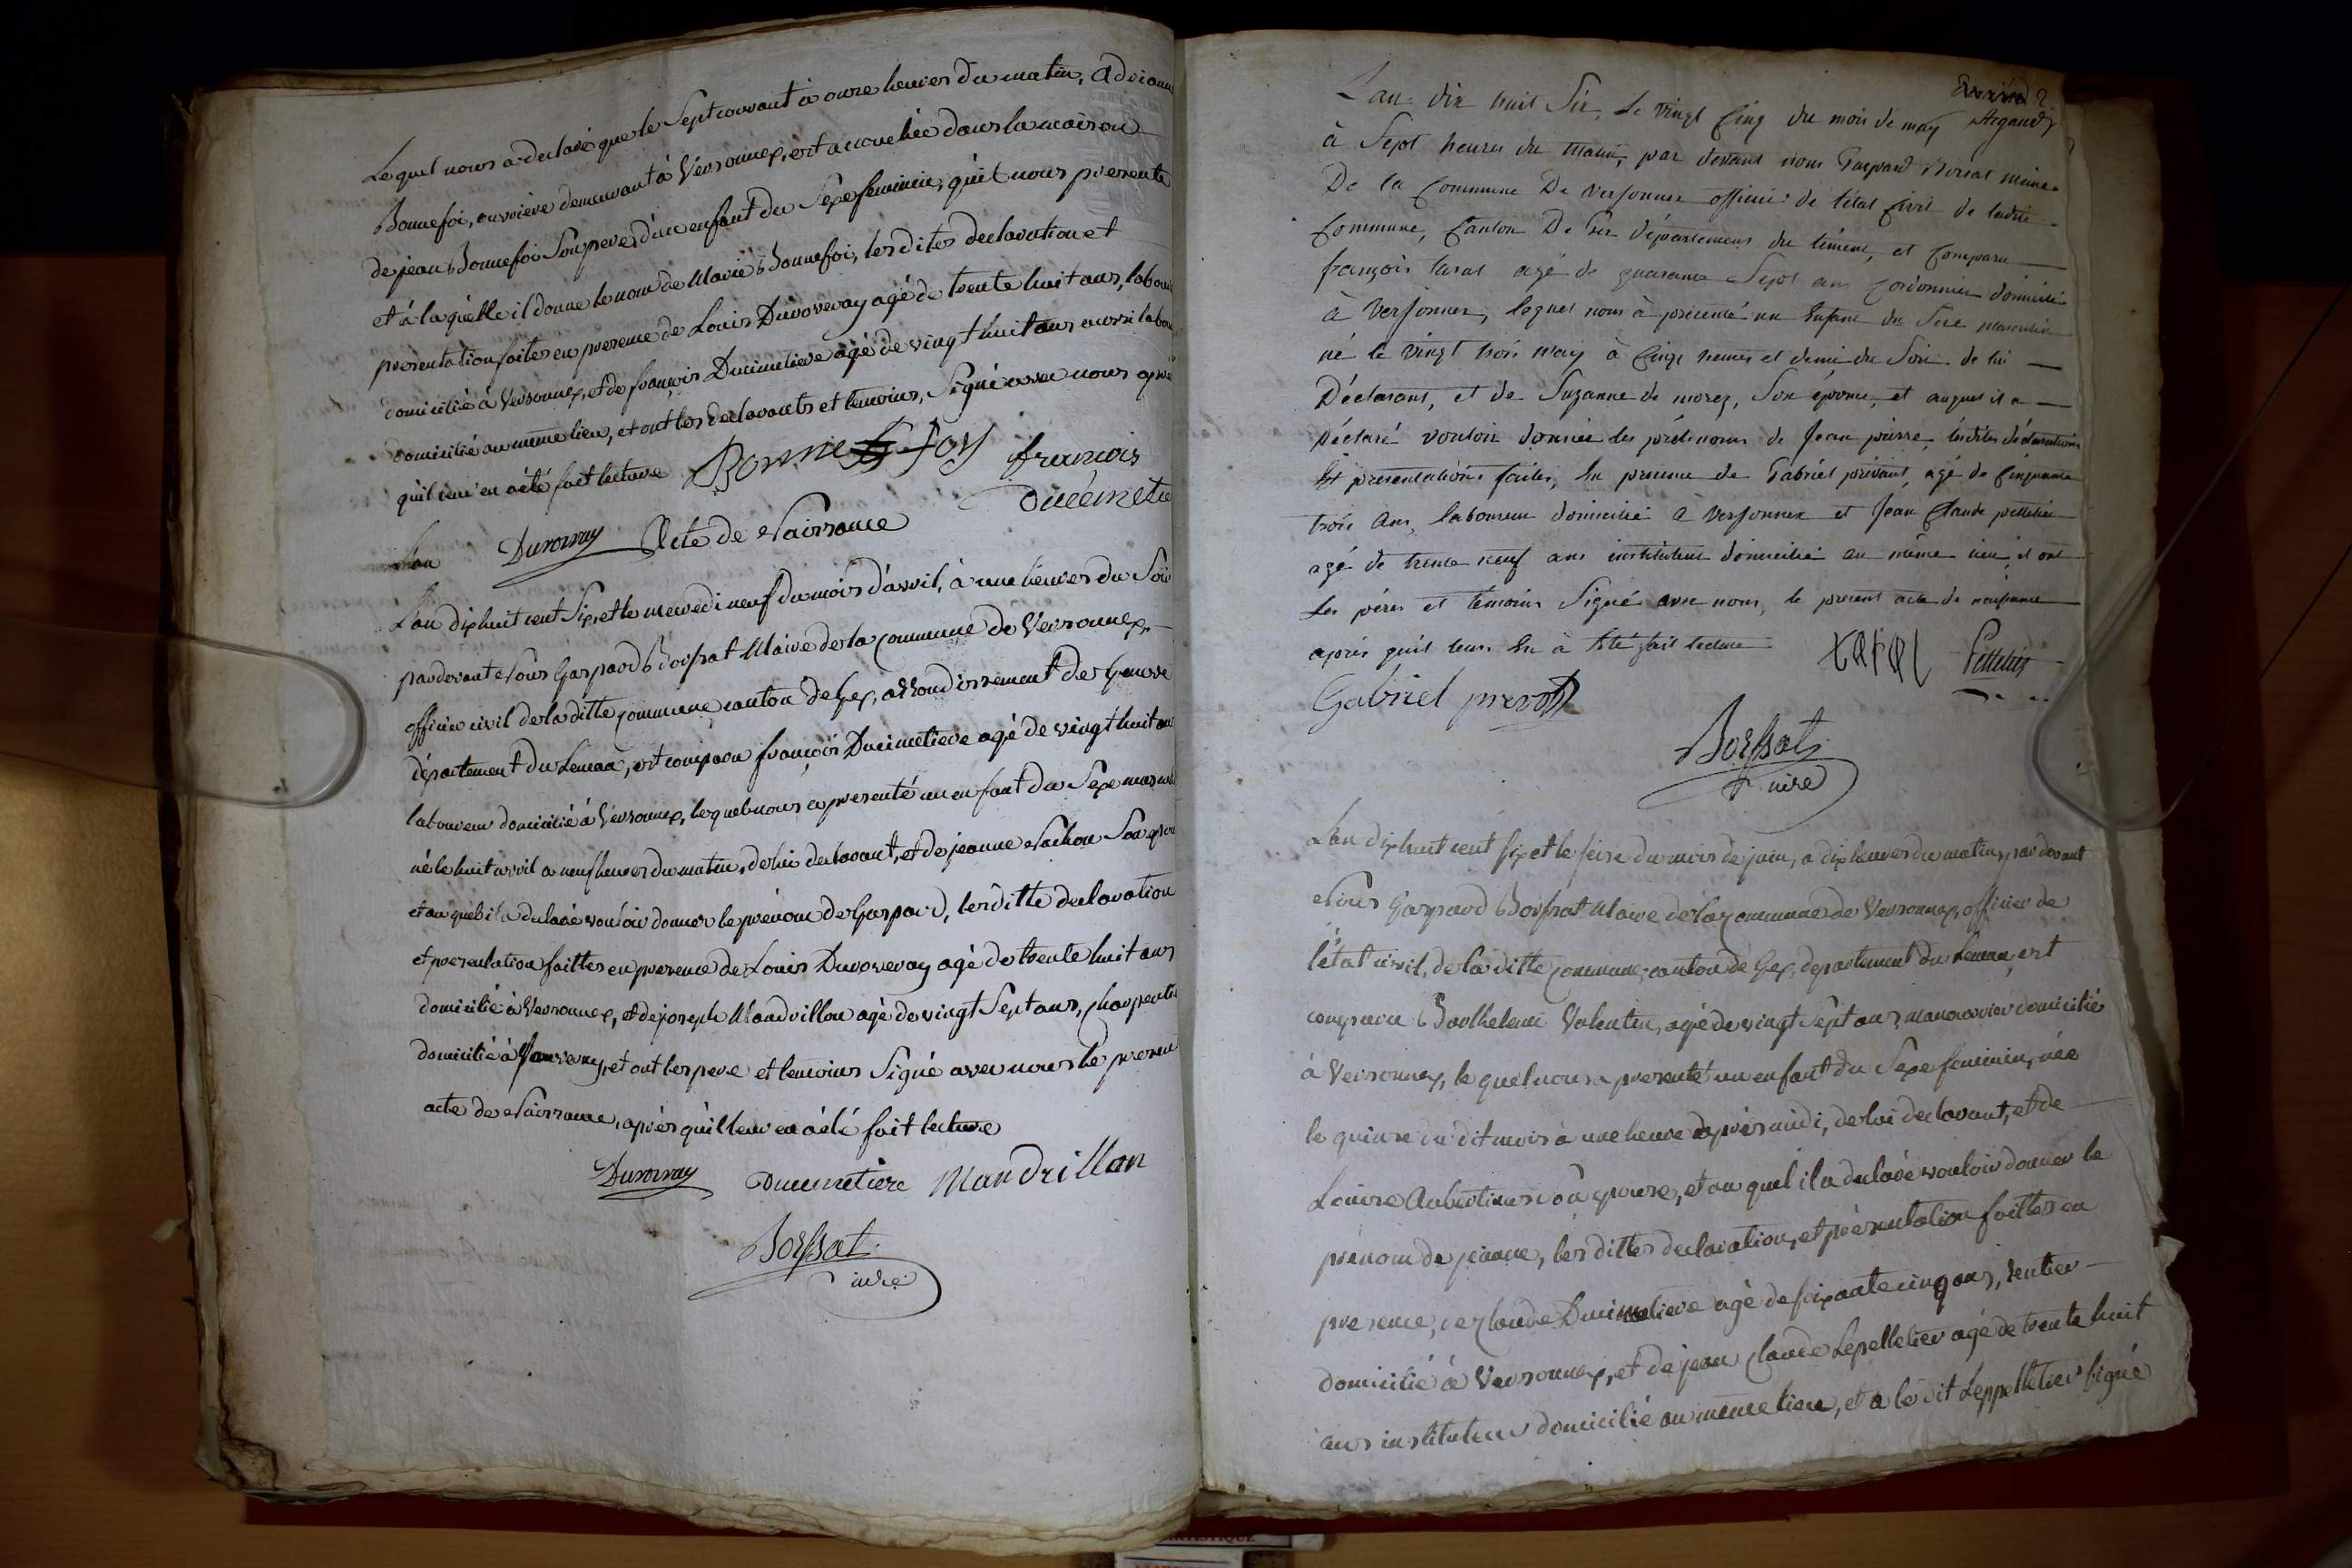 Lequel nous a declaré que le Sept courant à onze heures du matin,
Bonnefoi, ouvriere demeurant à Versonnex, est accouchée dans la maison
de jean Bonnefoi Son pere, d'un enfant du Sexe feminin, qu'il nous presente
et à laquelle il donne le nom de Marie Bonnefoi, les dites declaration et
presentation faites en presence de Louis Duroveray agé de trente huit ans,
domicilié à Versonnex, et de françois Ducimetiere agé de vingt huit ans aussi
domicilié au meme lieu, et ont les declarants et temoins, Signé avec nous
qu'il en a été fait lecture Bonnefoy francois
Duroveray Acte de Naissance
L'an dix huit cent Six, et le mercredi neuf du mois d'avril, à une heures du Soir
pardevant Nous Gaspard Borssat Maire de la commune de Versonnex,
officier civil de la ditte commune, canton de Gex, arrondissement de Geneve
département du Leman, est comparu françois Ducimetiere agé de vingt huit ans
laboureur domicilié à Versonnex, lequel nous a presenté un enfant du Sexe
né le huit avril a neuf heures du matin, de lui declarant, et de jeanne Nachon Son
et au quel il a declaré vouloir donner le prénom de Gaspard, les ditte declaration
et presentation faittes en presence de Louis Duroveray agé de trente huit ans
domicilié à Versonnex, et de joseph Mandrillon agé de vingt Sept ans,
domicilié à et ont les pere et temoins Signé avec nous le
acte de Naissance, après qu'il leur en a été fait lecture
Duroveray Ducimetiere Mandrillon
Borssat
L'an dix huit Six, le vingt Cinq du mois de may
à Sept heures du matin, par devant nous Gaspard Borsat maire
De la Commune De Versonnex officier de l'état Civil de ladite
Commune, Canton De Gex département du Léman, et Comparu
françois agé de quarante Sept ans Cordonnier domicilié
à Versonnex, lequel nous à présenté un Enfant du Sexe masculin
né le vingt trois may à Cinq heures et demi du Soir de lui
Déclarant, et de Suzanne de morez, Son épouse, et auquel il a
Déclaré vouloir donner les prénoms de Jean pierre, les dites déclarations
Et présentations faites, En presence de Gabriel prevost, agé de Cinquante
trois Ans, laboureur domicilié à Versonnex et Jean Claude pelletier
agé de trente neuf ans instituteur domicilié au même lieu, et ont
Les péres et témoins Signé avec nous, le present acte de naissance
après qu'il leurs En à été fait lecture Pelletier
Gabriel prevost
Borssat
L'an dix huit cent six et le seize du mois de juin, a dix heures du matin, par devant
Nous Gaspard Borssat Maire de la commune de Versonnex, officier de
l'état civil, de la ditte commune, canton de Gex, departement du Leman, est
comparu Barthelemi Valentin, agé de vingt Sept ans, manouvrier domicilié
à Versonnex, le quel nous a presenté un enfant du Sexe feminin, née
le quinze du dit mois à une heure après midi, de lui declarant, et de
Louise Son epouse, et au quel il a declaré vouloir donner le
prénom de jeanne, les dittes declaration, et présentation faittes en
presence, de Claude Ducimetiere agé de soixante cinq ans, rentier
domicilié à Versonnex, et de jean Claude Lepelletier agé de trente huit
ans instituteur domicilié au meme lieu, et a le dit Leppelletier signé